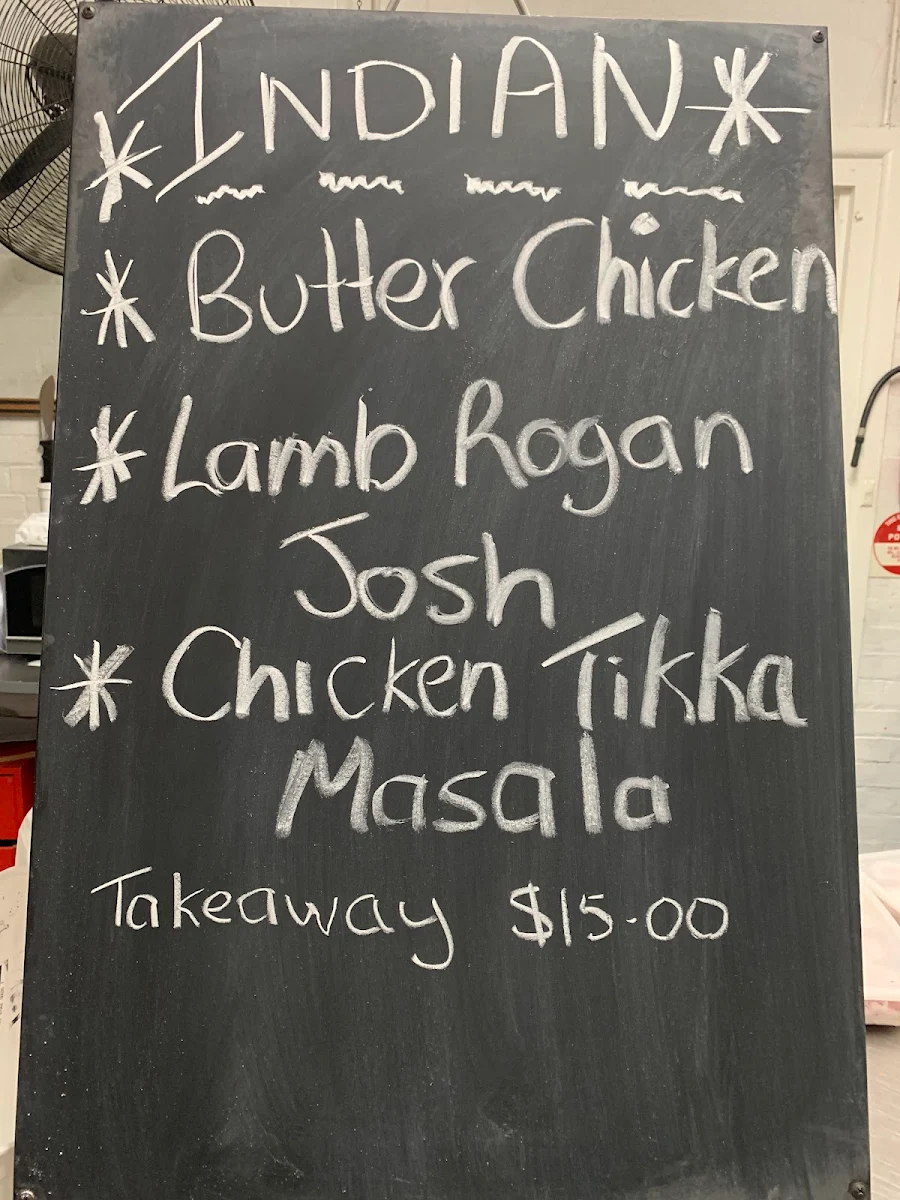 * INDIAN *
* Butter Chicken
* Lamb Rogan
Josh
* Chicken Tikka
Masala
Takeaway $15.00